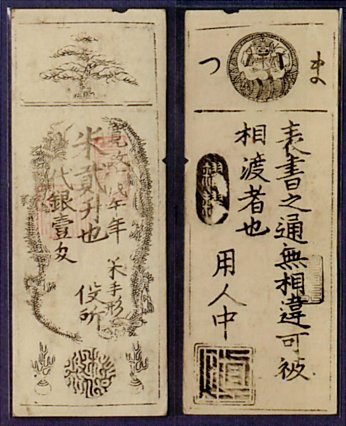 寛政戊午年
米貳升也
代銀壹匁
米手形
役所
まつ
表書之通無相違可被
相渡者也
用人中